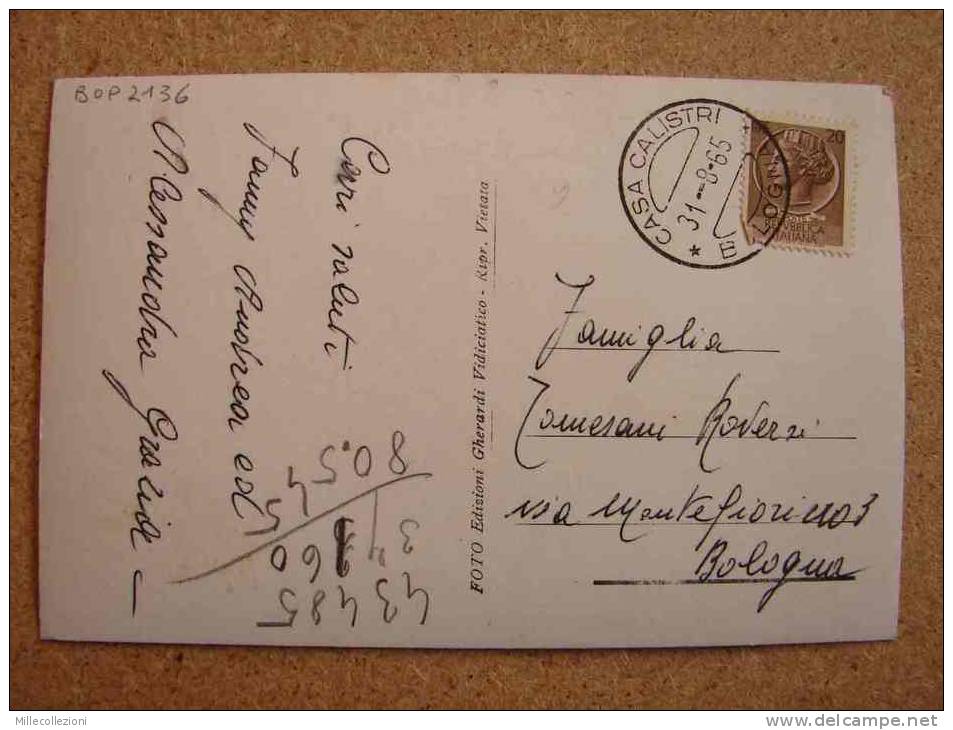 BOP2136
Cari saluti
Fanny Andrea ed
Alessandra Grazia -
FOTO Edizioni Gherardi Vidiciatico - Ripr. Vietata
* CASA CALISTRI
BOLOGNA
31--8-65
20
REPVBBLICA
ITALIANA
Famiglia
Tomesani Roversi
via Montefiorino 3
Bologna
Millecollezioni
www.delcampe.net